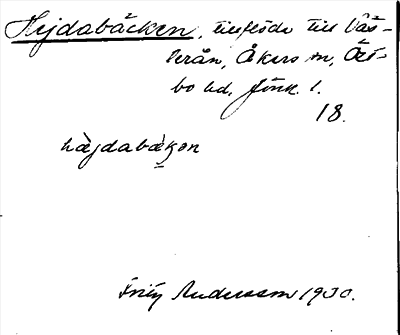 Hejdabäcken, tillflöde till Väs-
terån, Åkers sn, Öst-
bo hd, Jönk. l.
18.
hæ̀jdabækən
Fritz Andersson 1930.